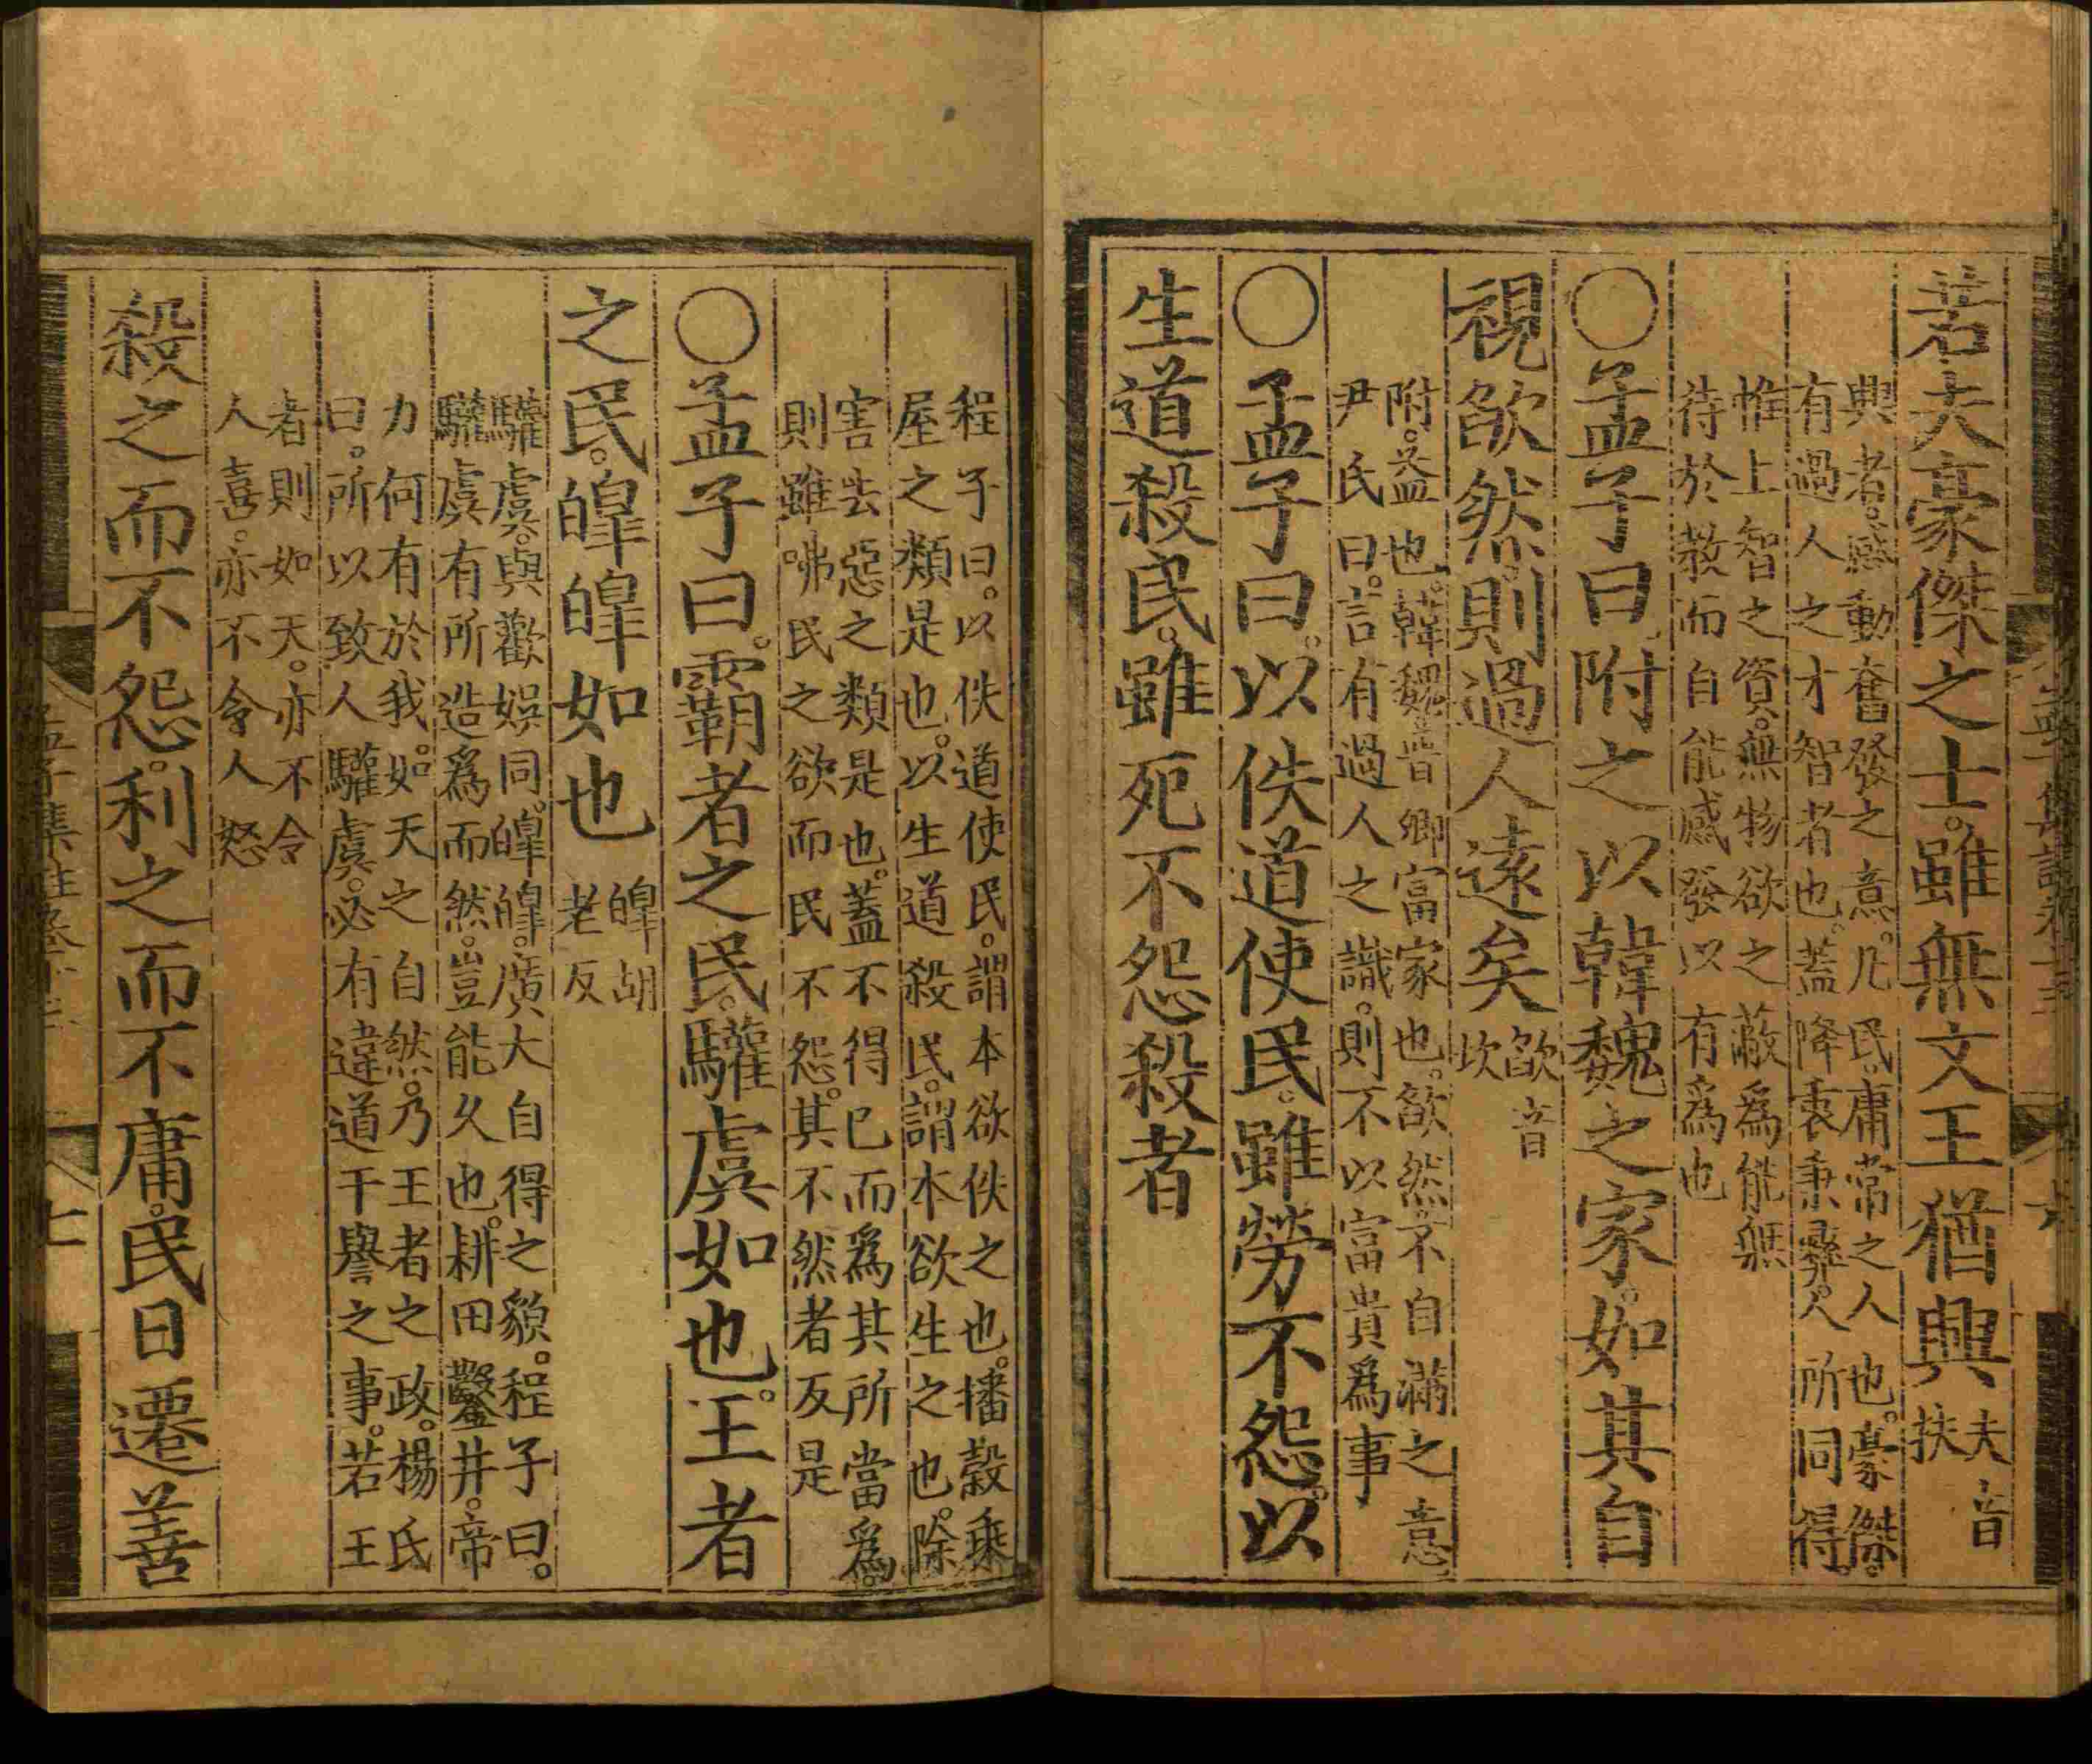 若夫豪傑之士。雖無文王猶興夫音
扶
興者。感動奮發之意。凡民。庸常之人也。豪傑。
有過人之才智者也。蓋降衷秉彝。人所同得。
惟上智之資。無物欲之蔽爲能無
待於教而自能感發以有爲也
○孟子曰。附之以韓魏之家。如其自
視欿然。則過人遠矣欿音
坎
附。益也。韓魏。晉卿富家也。欿然。不自滿之意。
尹氏曰。言有過人之識。則不以富貴爲事
○孟子曰。以佚道使民。雖勞不怨。以
生道殺民。雖死不怨殺者
程子曰。以佚道使民。謂本欲佚之也。播穀乘
屋之類是也。以生道殺民。謂本欲生之也。除
害去惡之類是也。蓋不得已而爲其所當爲。
則雖咈民之欲而民不怨。其不然者反是
○孟子曰。霸者之民。驩虞如也。王者
之民。皥皥如也皥胡
老反
驩虞。與歡娛同。皥皥。廣大自得之貌。程子曰。
驩虞有所造爲而然。豈能久也。耕田鑿井。帝
力何有於我。如天之自然。乃王者之政。楊氏
曰。所以致人驩虞。必有違道干譽之事。若王
者則如天。亦不令
人喜。亦不令人怒
殺之而不怨。利之而不庸。民日遷善